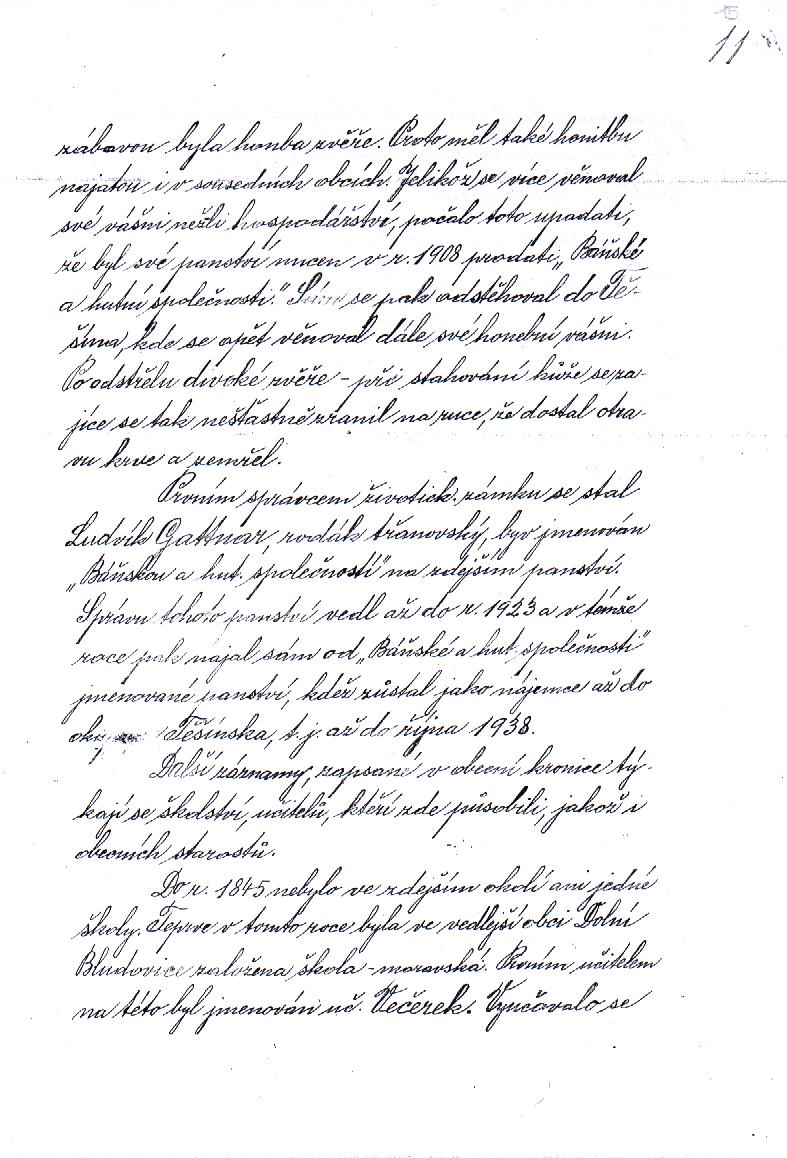 15
11
zábavou byla honba zvěře. Proto měl také honitbu
najatou i v sousedních obcích. Jelikož se více věnoval
své vášni nežli hospodářství, počalo toto upadati,
že byl své panství nucen v r. 1908 prodati „Báňské
a hutní společnosti." Sám se pak odstěhoval do Tě-
šína, kde se opět věnoval dále své honební vášni.
Po odstřelu divoké zvěře - při stahování kůže se za-
jíce se tak nešťastně zranil na ruce, že dostal otra-
vu krve a zemřel.
Prvním správcem životick. zámku se stal
Ludvík Gattnar, rodák třanovský, byv jmenován
„Báňskou a hut. společností" na zdejším panství.
Správu tohoto panství vedl až do r. 1923 a v témže
roce pak najal sám od „Báňské a hut. společnosti"
jmenované panství, kdež zůstal jako nájemce až do
Těšínska, t.j. až do října 1938.
Další záznamy, zapsané v obecní kronice tý-
kají se školství, učitelů, kteří zde působili, jakož i
obecních starostů.
Do r. 1845 nebylo ve zdejším okolí ani jedné
školy. Teprve v tomto roce byla ve vedlejší obci Dolní
Bludovice založena škola - moravská. Prvním učitelem
na této byl jmenován uč. Večerek. Vyučavalo se